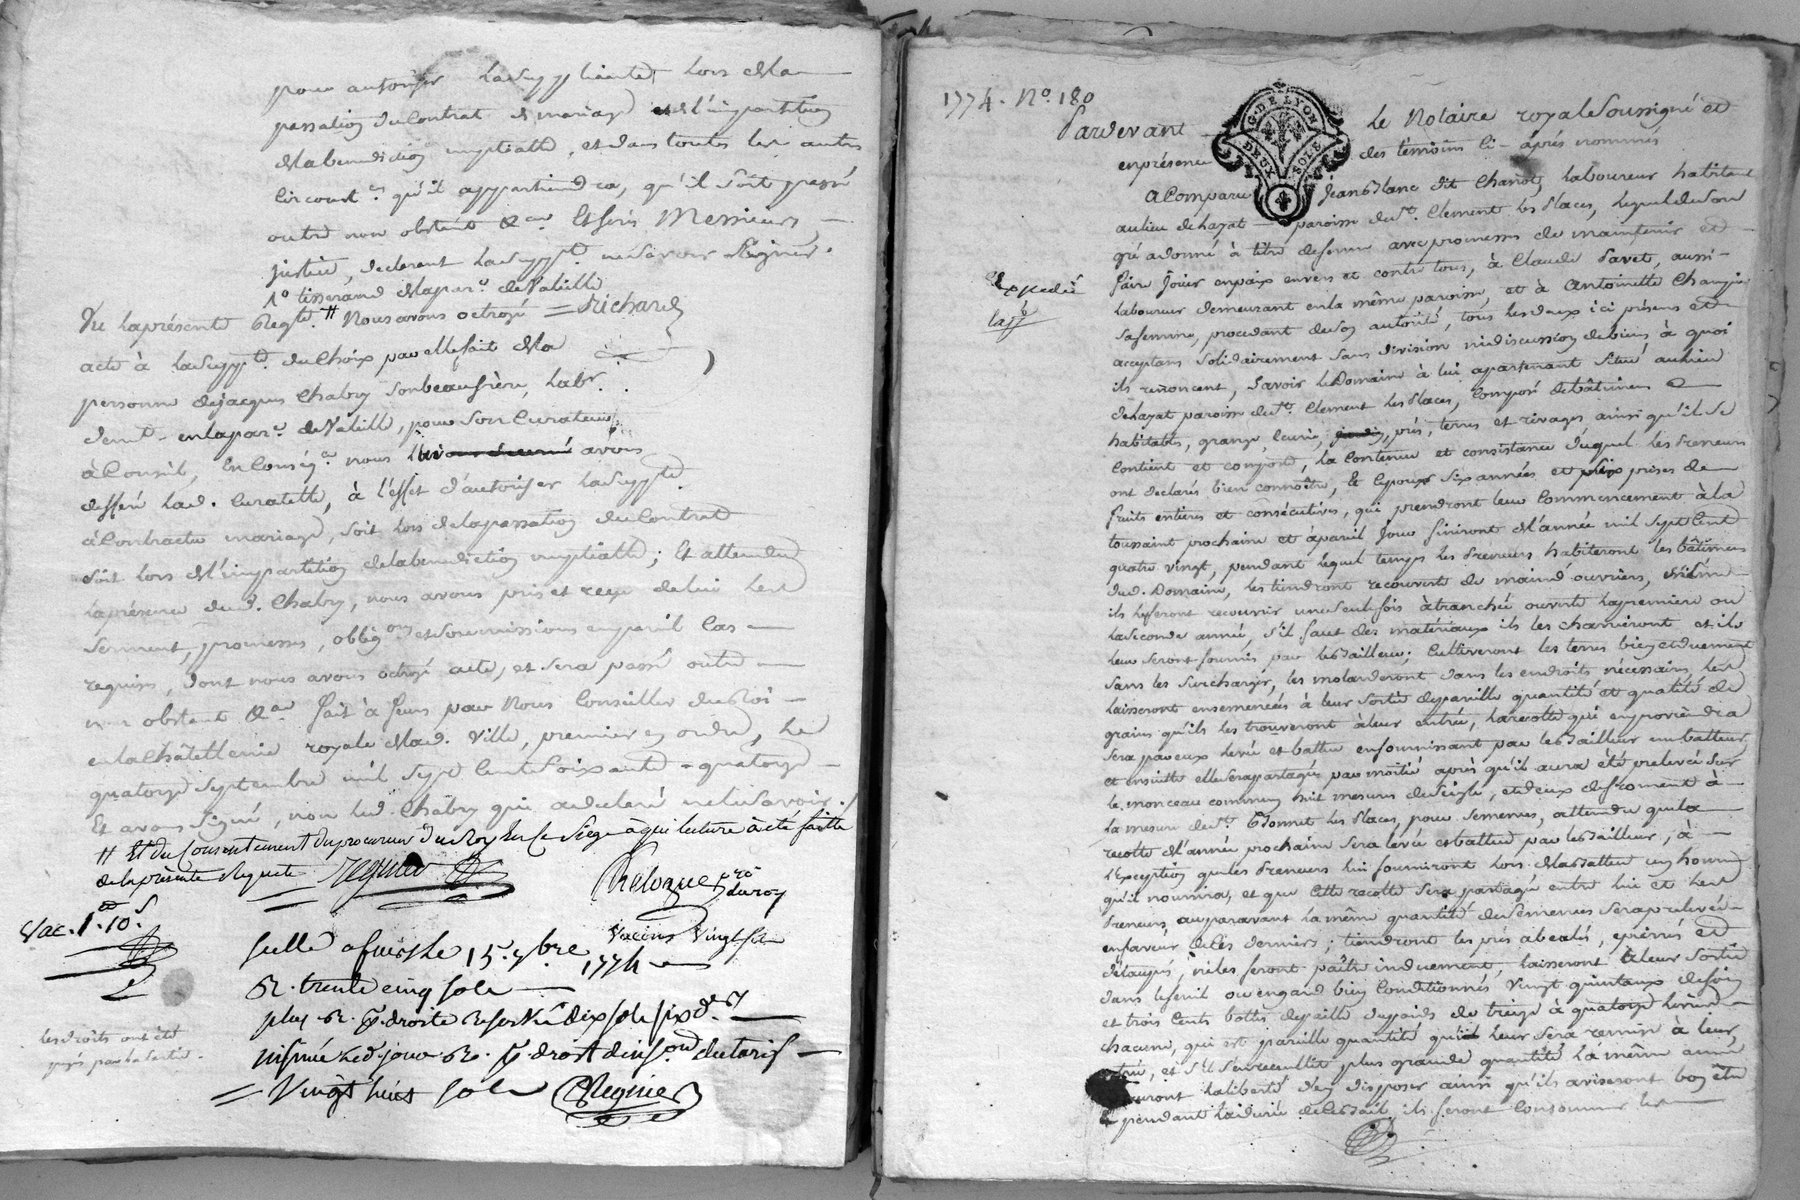 pour autoriser la suppliante, lors de la
passation du contrat de mariage et de l'impartition
de la benediction nuptialle, et dans toutes les autres
circonst.es qu'il appartiendra, qu'il soit passé
outre non obstant &.a et ferés Messieurs
justice, declarant la supp.te ne savoir signer.
1° tisserand de la par.e de Valeille
Vu la présente Reqte. # Nous avons octroyé = Richard
acte à la supp.te du choix par elle fait de la
personne de jacques Chabry son beaufrère, labr.
demt. en la par.e de Valeille, pour son curateur
à Conseil, En Conség.ce nous avons
déféré lad. Curatelle, à l'effet d'autoriser la supp.te
à Contracter mariage, soit lors de la passation du Contrat
soit lors de l'impartition de la benediction nuptialle; Et attendu
la présence dud. Chabry, nous avons pris et reçu de lui les
serment, promesses, oblig.ons et soumissions en pareil cas
requises, dont nous avons octroyé acte, et sera passé outre
non obstant &.a fait à feurs par Nous Conseiller du Roi
en la Châtellenie royale de lad. Ville, premier en ordre, le
quatorze septembre mil sept cent soixante-quatorze
Et avons signé, non led. Chabry qui a declaré ne le savoir.
# Et du Consentement du procureur du Roy En Ce Siege à qui lecture à été faitte
de la présente Requete
Vac. 1# 10s
du roy
Vacions Vingt sols
scellé a feurs le 15. 7bre 1774
R. trente cinq sols
plus R. p. droits reservés dix sols six d.
insinué led. jour R. p. droit d'ins.on du tarif
Vingt huit sols Regnier
les droits ont été
payés par la partie.
1774. No. 180
G. DE LYON
DEUX SOLS
Pardevant le Notaire royal soussigné et
en présence des témoins ci-après nommés
A Comparu Jean Blanc dit Charlot, laboureur habitant
au lieu de Lazat paroisse de St. Clement les Places, lequel de son
gré a donné à titre de ferme avec promesses de maintenir et
faire jouir en paix envers et contre tous, à Claude Pavet, aussi
Expedié
laboureur demeurant en la même paroisse, et à Antoinette
sa femme, procédant de son autorité, tous les deux ici présens et
acceptans solidairement sans division ni discussion de biens à quoi
ils renoncent, Savoir le Domaine à lui apartenant situé au lieu
de Lazat paroisse de St. Clement les Places, composé de bâtimens
habitables, grange, écurie, prés, terres et rivages ainsi qu'il se
contient et comporte, la contenue et consistance duquel les Preneurs
ont declarés bien connoître, Et ce pour six années et six prises de
fruits entieres et consécutives, qui prendront leur commencement à la
toussaint prochaine et à pareil jour finiront de l'année mil sept cent
quatre vingt, pendant lequel temps les Preneurs habiteront les bâtimens
dud. Domaine, les tiendront recouverts de maind'ouvriers,
ils les feront recouvrir une seule fois à tranchée ouverte la premiere ou
la seconde année, s'il faut des matériaux ils les charrieront et ils
leur seront fournis par le Bailleur; Cultiveront les terres bien et duement
sans les surcharger, les molanderont dans les endroits nécessaires, les
laisseront ensemencées à leur sortie de pareille quantité et qualité de
grains qu'ils les trouveront à leur entrée, la recolte qui en proviendra
sera par eux levée et battue en fournissant par le Bailleur un batteur,
et ensuitte elle sera partagée par moitié après qu'il aura été prelevé sur
le monceau commun huit mesures de seigle, et deux de froment à
la mesure de St. Bonnet les Places, pour semences, attendu que la
recolte de l'année prochaine sera levée et battue par le Bailleur, à
l'Exception que les Preneurs lui fourniront lors de la Batteur un homme
qu'il nourrira, et que cette recolte sera partagée entre lui et les
Preneurs, auparavant la même quantité de semences sera prelevée
en faveur de ces derniers; tiendront les prés abealés, epierrés et
ni les feront paître induement, laisseront à leur sortie
dans le fenil ou engard bien conditionnés vingt quintaux de foin
et trois cents bottes de paille du poids de treize à quatorze livres
chacune, qui est pareille quantité qui leur sera remise à leur
et s'il s'en recueilloit plus grande quantité la même année
auront la liberté d'en disposer ainsi qu'ils aviseront bon être
pendant la durée de ce Bail ils feront consommer les